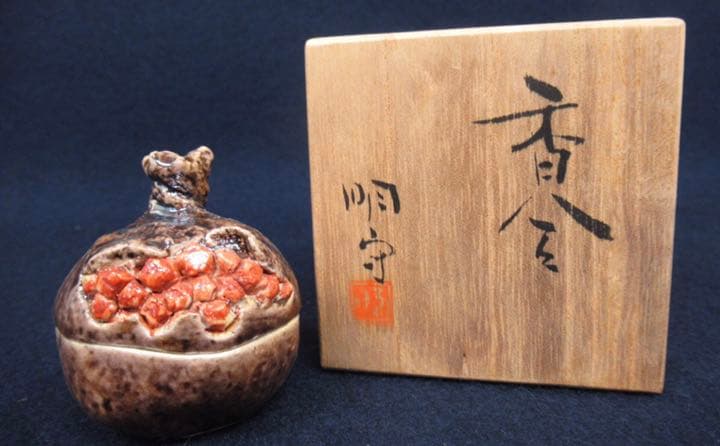 香合
明守